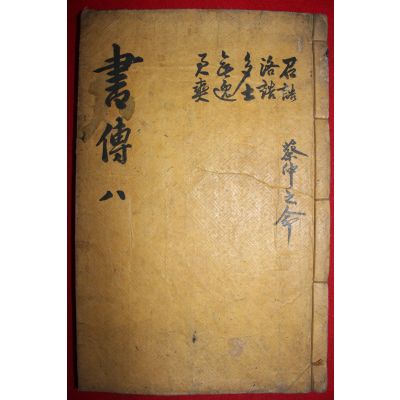 召誥
洛誥
多士
無逸
君奭
蔡仲之命
書傳 八